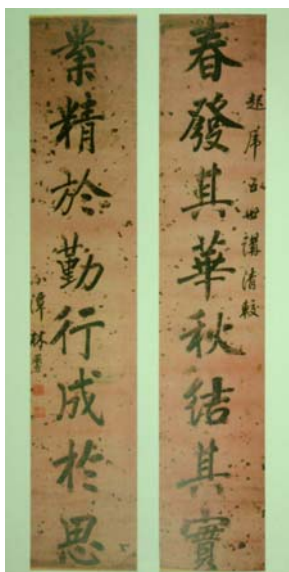 春發其華秋結其實
五世講清較
業精於勤行成於思
小潭林